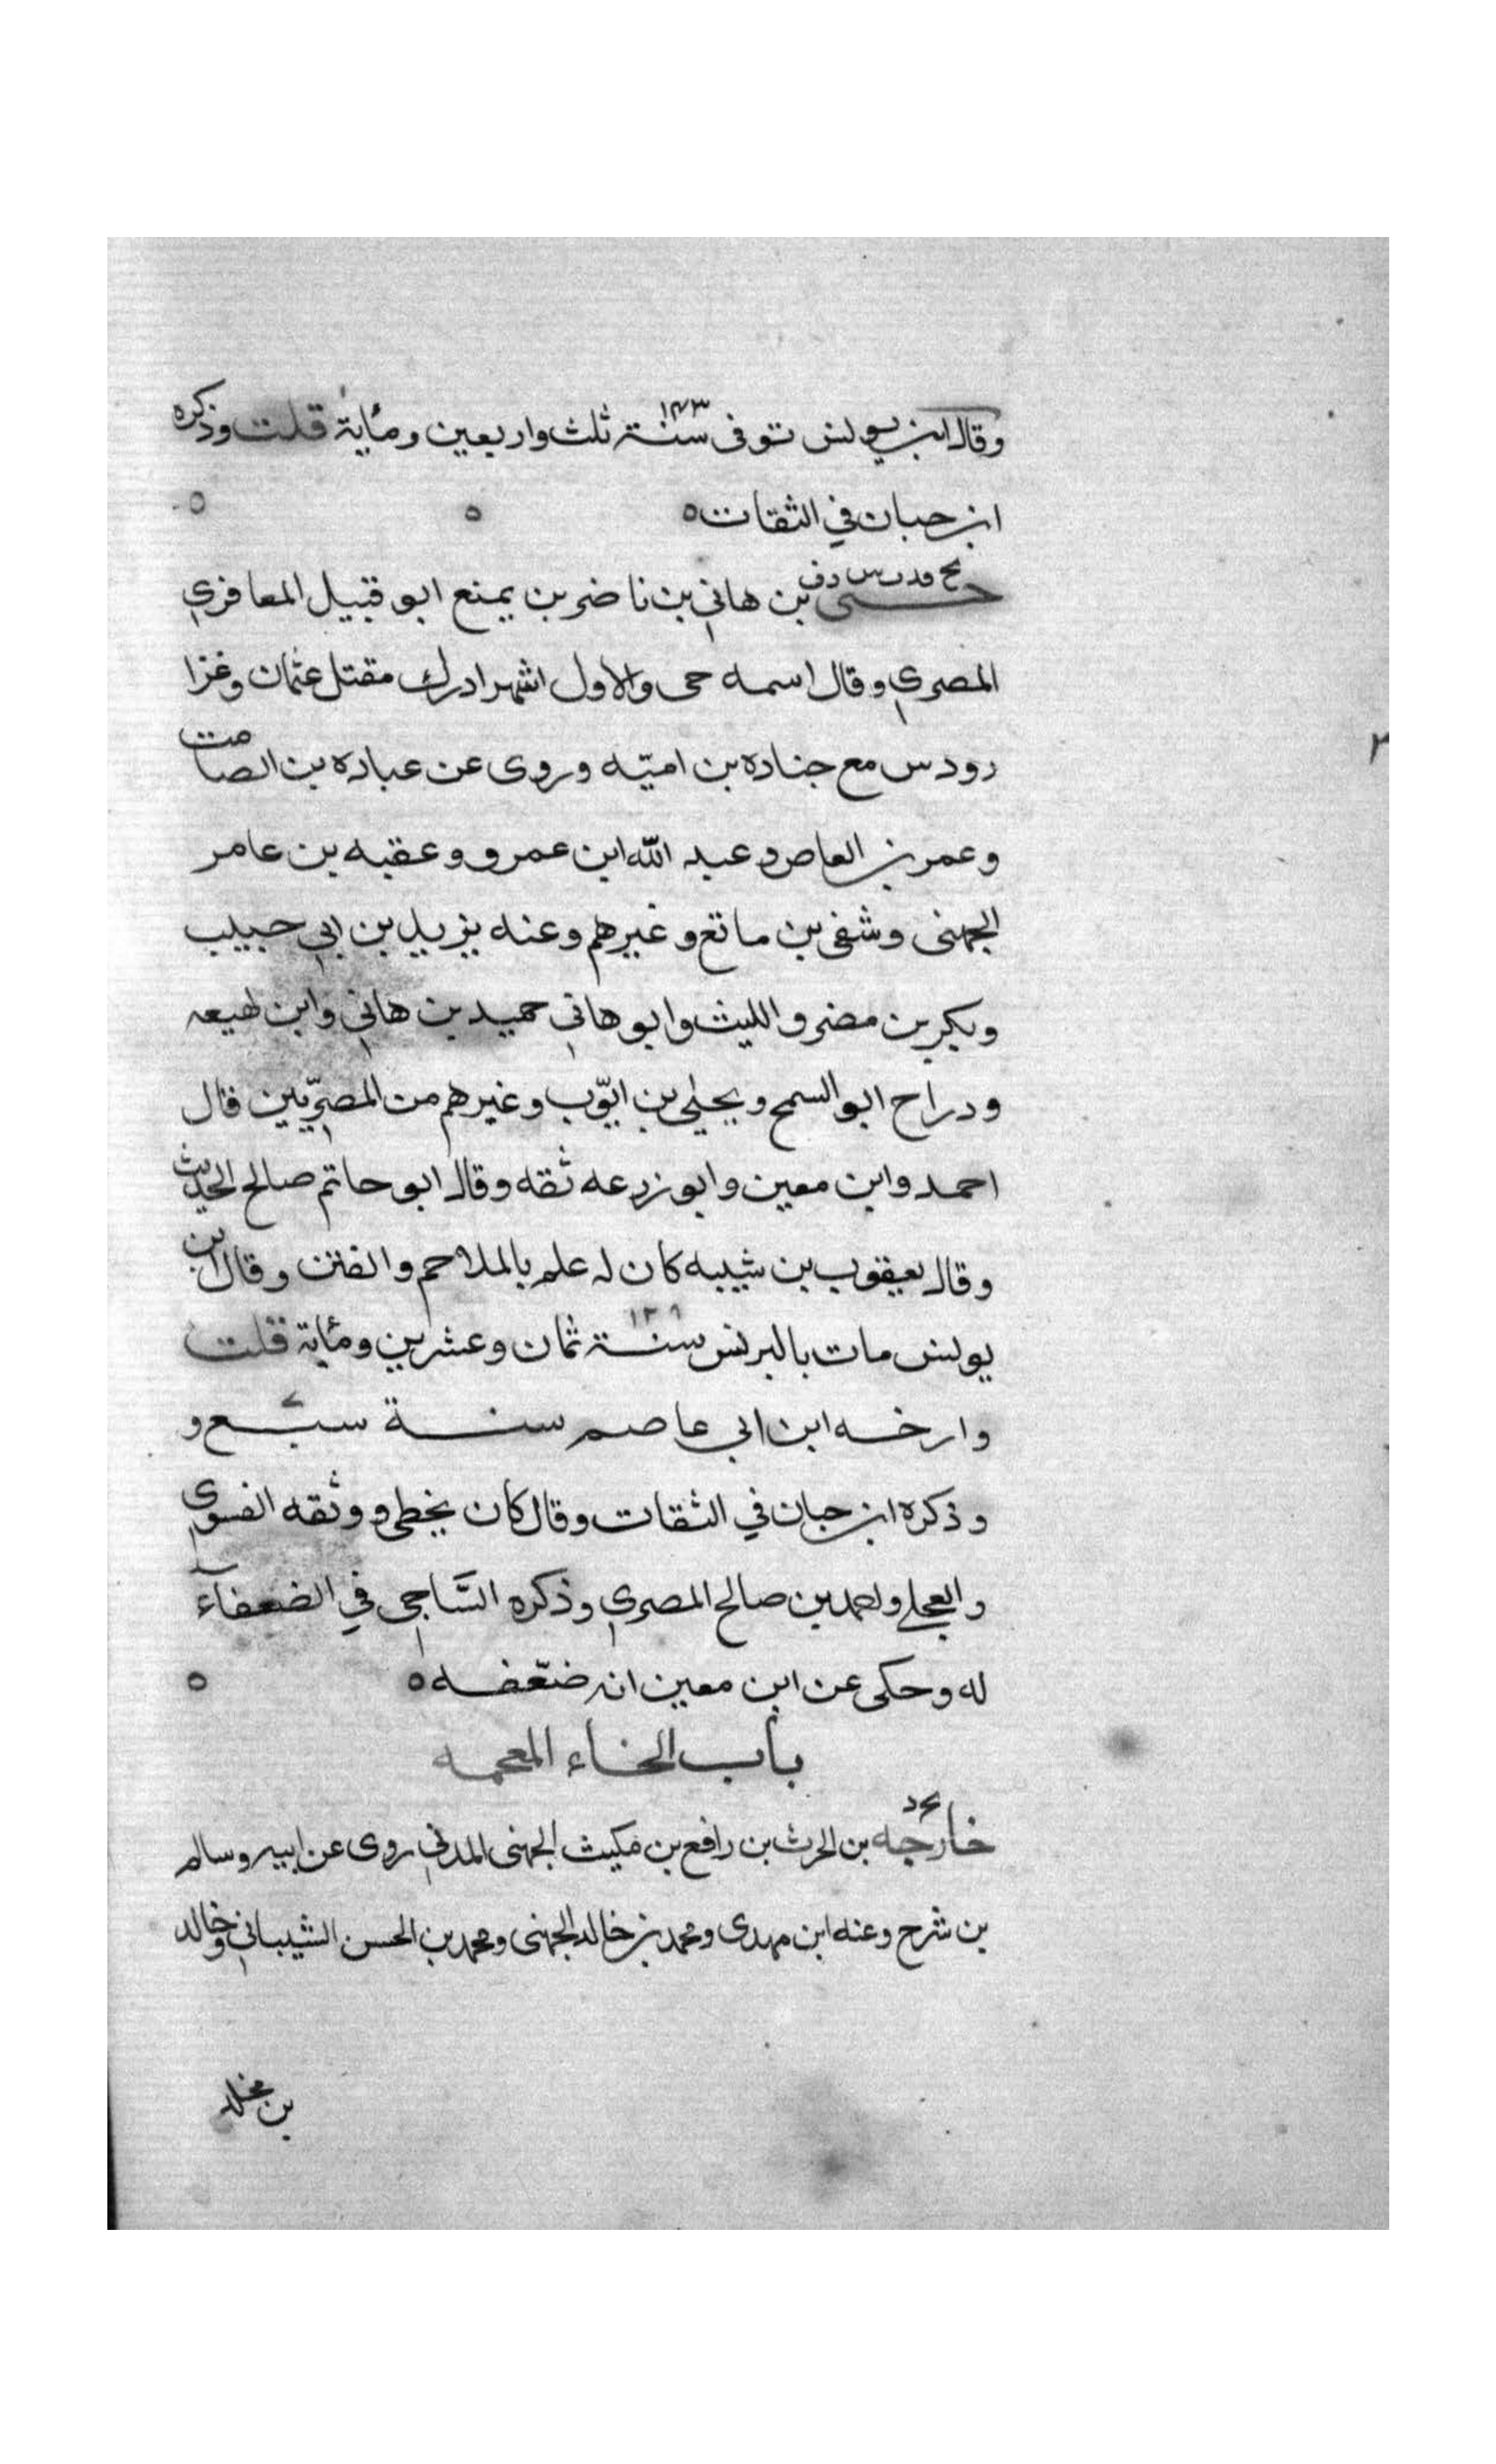 وقال ابن يونس توفى سنة ١٤٣ ثلث واربعين ومأية قلت وذكره
ابن حبان في الثقات ه ه ه
حيى بن هاني بن ناضر بن يمنع ابو قبيل المعافري
المصري وقال اسمه حى والاول اشهر ادرك مقتل عثمان وغزا
رودس مع جناده بن اميّه وروى عن عباده بن الصامت
وعمر بن العاص وعبد الله ابن عمرو وعقبه بن عامر
الجهنى وشفى بن ماتع وغيرهم وعنه يزيد بن ابي حبيب
وبكر بن مضر والليث وابو هاني حميد بن هاني وابن لهيعه
ودراح ابو السمح ويحيى بن ايّوب وغيرهم من المصرّيين قال
احمد وابن معين وابو زرعه ثقه وقال ابو حاتم صالح الحديث
وقال يعقوب بن شيبه كان له علم بالملاحم والفتن وقال ابن
يونس مات بالبرنس سنة ١٢٨ ثمان وعشرين ومأية قلت
وارخه ابن ابي عاصم سنة سبع و
وذكره ابن حبان في الثقات وقال كان يخطى ووثقه الفسوي
والعجلى واحمد بن صالح المصري وذكره السّاجى في الضعفآء
له وحكى عن ابن معين انه ضعّفه ه ه
باب الخاء المعجمه
خارجه بن الحرث بن رافع بن مكيث الجهنى المدني روى عن ابيه وسالم
بن سرح وعنه ابن مهدى ومحمد بن خالد الجهنى ومحمد بن الحسن الشيباني وخالد
بن مخلد